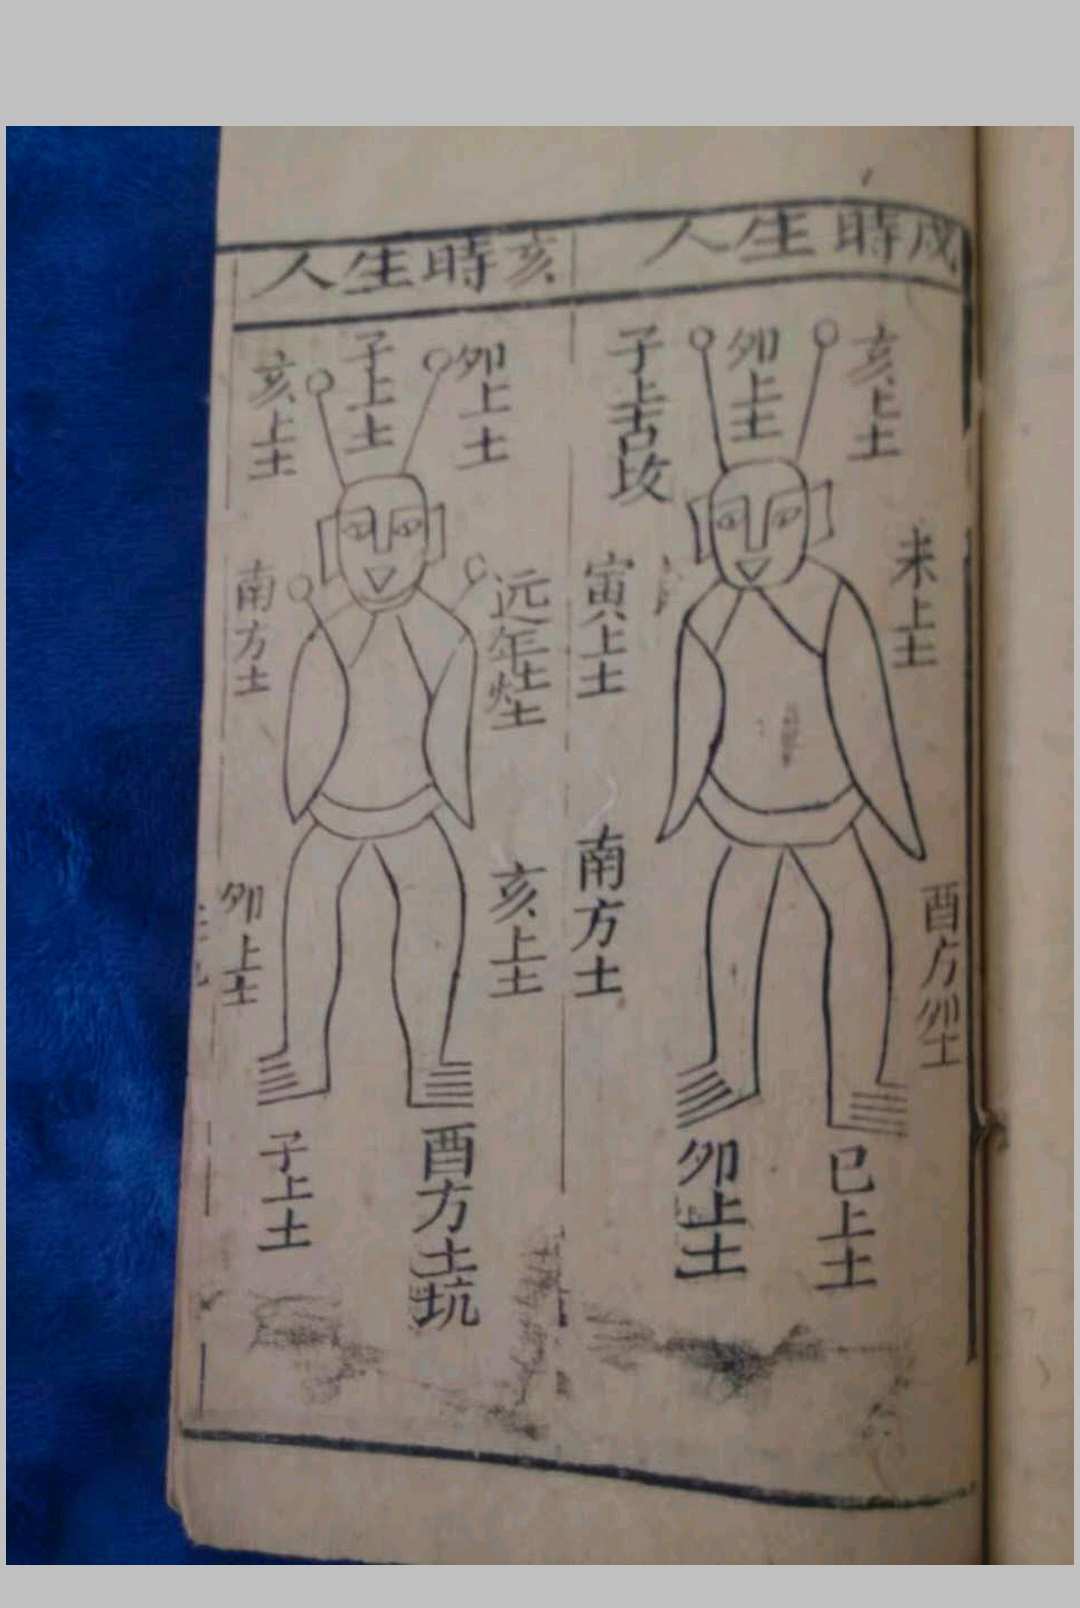 戌時生人
亥上土
卯上土
子上古坟
未上土
寅上土
酉方
南方土
巳上土
卯上土
亥時生人
卯上土
子上土
亥上土
远年土
南方土
亥上土
卯上土
酉方土坑
子上土